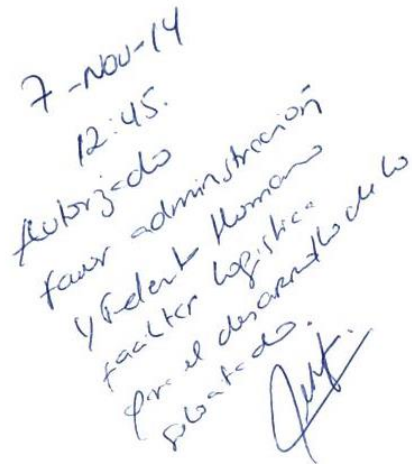 7-Nov-14
12:45.
Autorizado
favor administración
y Talento Humano
facilitar logística
para el desarrollo de lo
solicitado.